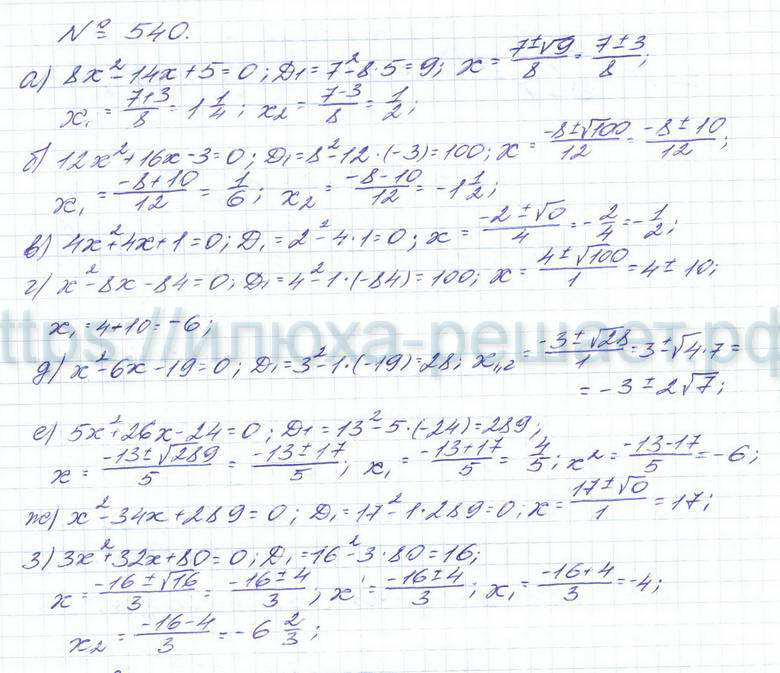 № 540.
а) 8x² - 14x + 5 = 0; Д₁ = 7² - 8·5 = 9; x = (7±√9)/8 = (7±3)/8;
x₁ = (7+3)/8 = 1 1/4; x₂ = (7-3)/8 = 1/2;
б) 12x² + 16x - 3 = 0; Д₁ = 8² - 12·(-3) = 100; x = (-8±√100)/12 = (-8±10)/12;
x₁ = (-8+10)/12 = 1/6; x₂ = (-8-10)/12 = -1 1/2;
в) 4x² + 4x + 1 = 0; Д₁ = 2² - 4·1 = 0; x = (-2±√0)/4 = -2/4 = -1/2;
г) x² - 8x - 84 = 0; Д₁ = 4² - 1·(-84) = 100; x = (4±√100)/1 = 4±10;
https://илюха-решает.рф
x₁ = 4+10 = -6;
д) x² - 6x - 19 = 0; Д₁ = 3² - 1·(-19) = 28; x₁,₂ = (-3±√28)/1 = 3±√4·7 =
= -3±2√7;
е) 5x² + 26x - 24 = 0; Д₁ = 13² - 5·(-24) = 289;
x = (-13±√289)/5 = (-13±17)/5; x₁ = (-13+17)/5 = 4/5; x₂ = (-13-17)/5 = -6;
ж) x² - 34x + 289 = 0; Д₁ = 17² - 1·289 = 0; x = (17±√0)/1 = 17;
з) 3x² + 32x + 80 = 0; Д₁ = 16² - 3·80 = 16;
x = (-16±√16)/3 = (-16±4)/3; x' = (-16±4)/3; x₁ = (-16+4)/3 = -4;
x₂ = (-16-4)/3 = -6 2/3;